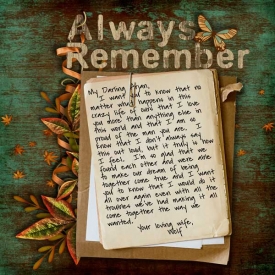 Always
Remember
My Darling Ryan,
I want you to know that no
matter what happens in this
crazy life of ours that I love
you more than anything else in
this world and that I am so
proud of the man you are. I
know that I don't always say
this out loud, but it truly is how
I feel. I'm so glad that we
found each other and were able
to make our dream of being
together come true and I want
you to know that I would do it
all over again even with all the
troubles we've had making it all
come together the way we
wanted.
Your loving wife,